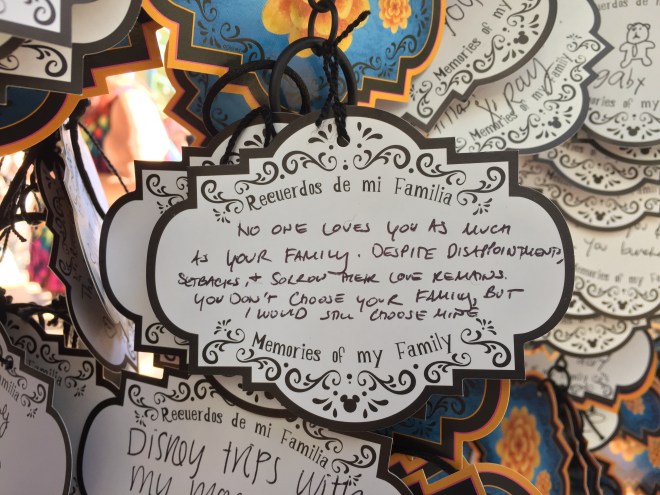 Memories of my
you
pay
Memories of my Family
gabx
Memories of my
Recuerdos de mi Familia
NO ONE LOVES YOU AS MUCH
AS YOUR FAMILY. DESPITE DISAPPOINTMENTS,
SETBACKS, + SORROW THEIR LOVE REMAINS.
YOU DON'T CHOOSE YOUR FAMILY, BUT
I WOULD STILL CHOOSE MINE
Memories of my Family
You
Recuerdos de mi Familia
Disney trips with
my